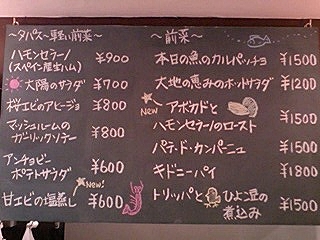 〜タパス〜軽い前菜〜
ハモンセラーノ ¥900
(スペイン産生ハム)
太陽のサラダ ¥700
桜エビのアヒージョ ¥800
マッシュルームの
ガーリックソテー ¥800
アンチョビー
ポテトサラダ ¥600
New!
甘エビの塩蒸し ¥600
〜前菜〜
本日の魚のカルパッチョ ¥1500
大地の恵みのホットサラダ ¥1200
New
アボカドと
ハモンセラーノのロースト ¥1500
パテ・ド・カンパーニュ ¥1500
キドニーパイ ¥1800
トリッパと ひよこ豆の
煮込み ¥1500